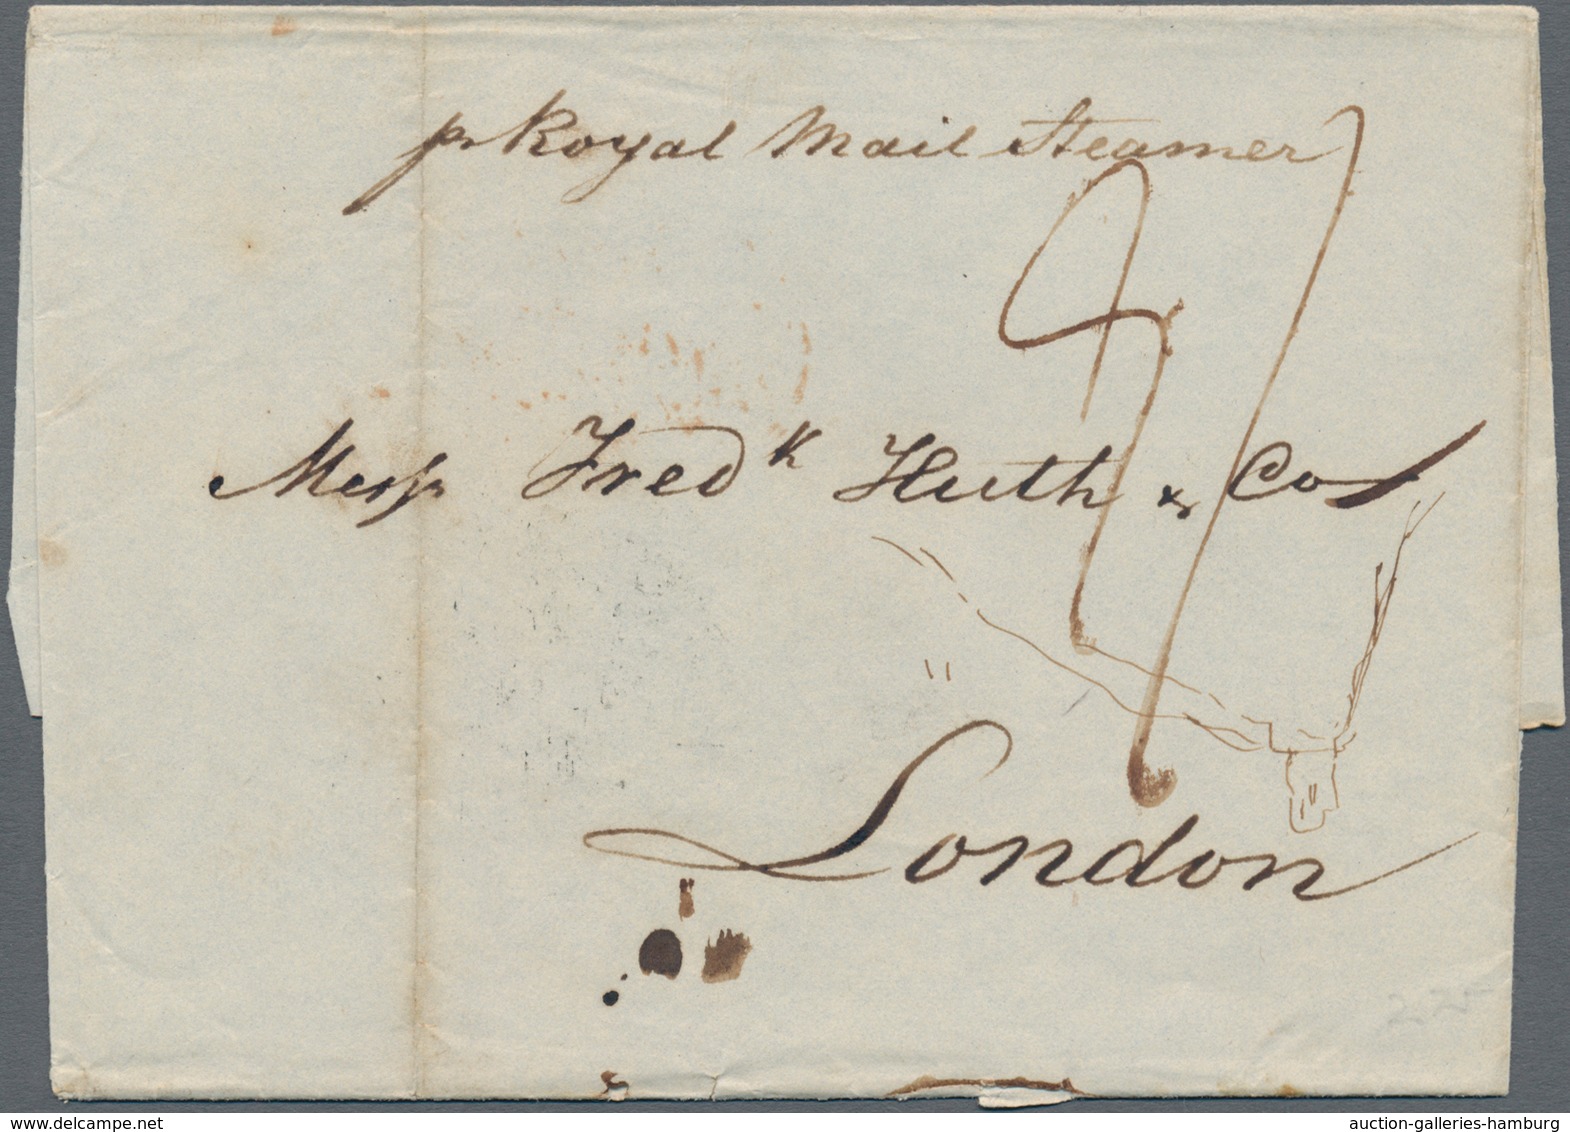 pr Royal Mail Steamer
Messrs Fredk Huth & Co
London
225
delcampe.net
auction-galleries-hamburg